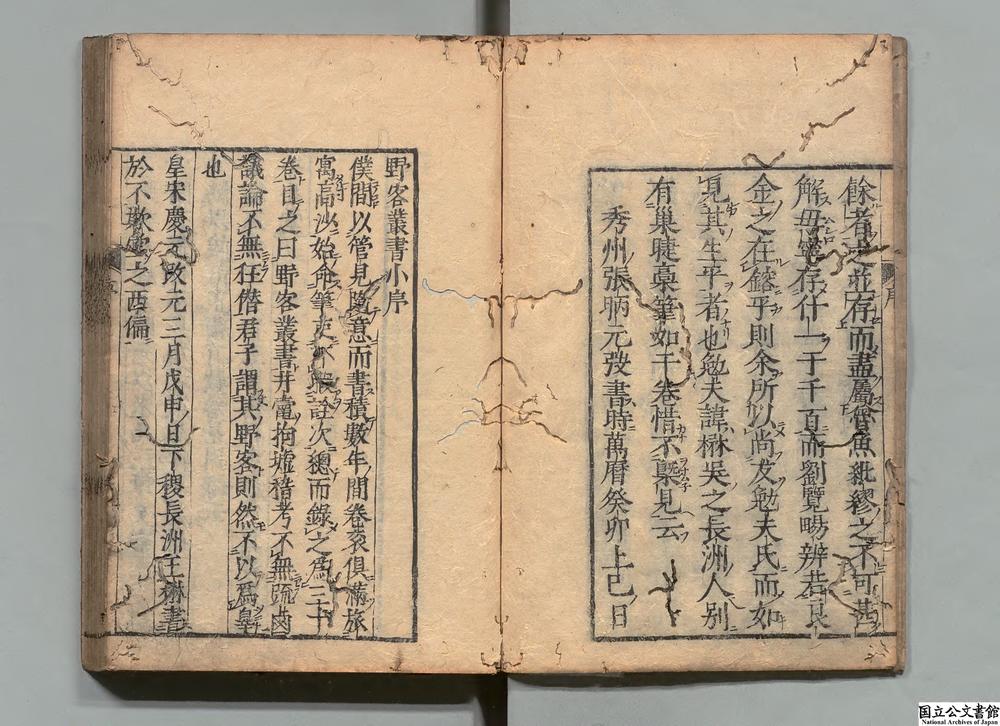 餘者或並存而盡屬魯魚紕繆之不可甚
解毋寧存什一于千百而劉覽暢辨若良
金之在鎔乎則余所以尚友勉夫氏而如
見其生平者也勉夫諱楙吳之長洲人別
有巢睫稾筆如干卷惜不槩見云
秀州張昞元弢書時萬曆癸卯上巳日
野客叢書小序
僕間以管見隨意而書積數年間卷袠俱滿旅
寓高沙始命筆吏不暇詮次總而錄之為三十
卷目之曰野客叢書井䵷拘墟稽考不無疏鹵
議論不無狂僣君子謂其野客則然不以為辠
也
皇宋慶元改元三月戊申日下稷長洲王楙書
於不欺堂之西偏
国立公文書館
National Archives of Japan